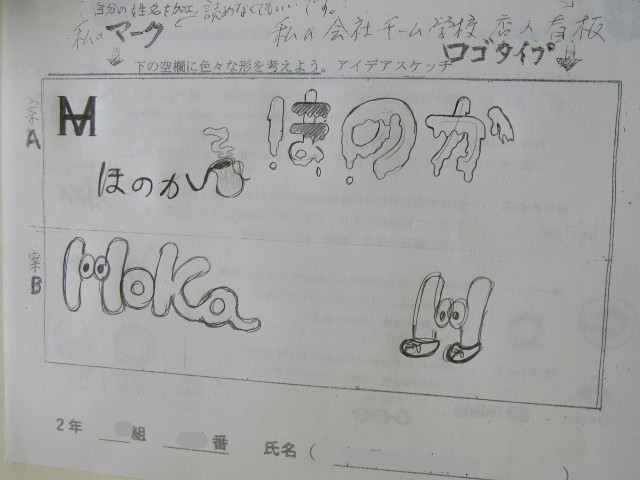 自分の姓名を加工、読めなくてもいいです。
私のマーク
私の会社チーム学校店の看板
ロゴタイプ
下の空欄に色々な形を考えよう。アイデアスケッチ
案A
ほのか
ほのか
案B
MoKa
2年 組 番 氏名(